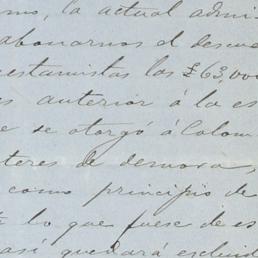 la actual admi
abonarnos el descue
estamistas las £63,000
anterior á la es
e se otorgó á Colom
teres de demora,
como principio de
lo que fuese de es
así quedará escluid